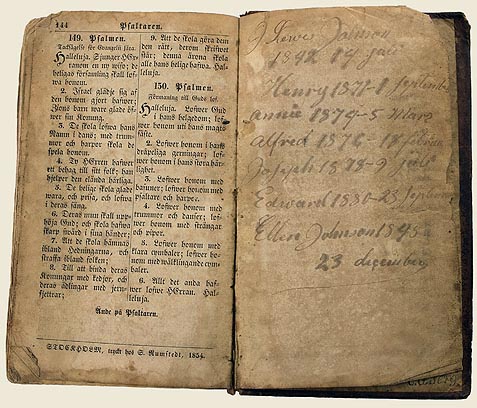 144 Psaltaren.
149. Psalmen.
Tacksägelse för Evangelii lära.
Halleluja. Sjunger HEr-
ranom en ny wiso; de
heligas församling skall lof-
wa honom.
2. Israel glädje sig af
den honom gjort hafwer;
Zions barn ware glade öf-
wer sin Konung.
3. De skola lofwa hans
Namn i dans; med trum-
mor och harpor skola de
spela honom.
4. Ty HErren hafwer
ett behag till sitt folk; han
hjelper den elända härliga.
5. De helige skola glade
wara, och prisa, och lofwa
i deras säng.
6. Deras mun skall upp-
höja Gud, och skola hafwa
skarp swärd i sina händer:
7. Att de skola hämnas
ibland Hedningarna, och
straffa ibland folken;
8. Till att binda deras
Konungar med kedjor, och
deras ädlingar med jern-
fjettrar;
9. Att de skola göra dem
den rätt, derom skrifwet
står; denna ärona skola
alle hans helige hafwa. Hal-
leluja.
150. Psalmen.
Förmaning till Guds lof.
Halleluja. Lofwer Gud
i hans helgedom; lof-
wer honom uti hans magts
fäste.
2. Lofwer honom i hans
dråpeliga gerningar; lof-
wer honom i hans stora här-
lighet.
3. Lofwer honom med
basuner; lofwer honom med
psaltare och harpor.
4. Lofwer honom med
trummor och danser; lof-
wer honom med stränger
och pipor.
5. Lofwer honom med
klara cymbaler; lofwer ho-
nom med wälklingande cym-
baler.
6. Allt det anda haf-
wer lofwe HErran. Hal-
leluja.
Ände på Psaltaren.
STOCKHOLM, tryckt hos S. Rumstedt, 1854.
Johnson
1842 14
Henry 1871-1 September
Annie 1874-5 Mars
Alfred 1876
Joseph 1878-9
Edward 1880-23 September
Ellen Johnson 1845
23 december